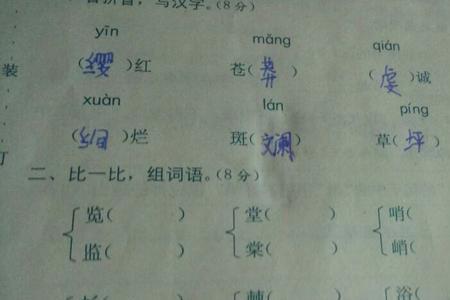 拼音，写汉字。(8分)
yīn măng qián
装
(缨)红 苍(莽) (虔)诚
xuàn lán píng
(绚)烂 斑(斓) 草(坪)
二、比一比，组词语。(8分)
览( ) 堂( ) 哨(
监( ) 棠( ) 峭(
浴(